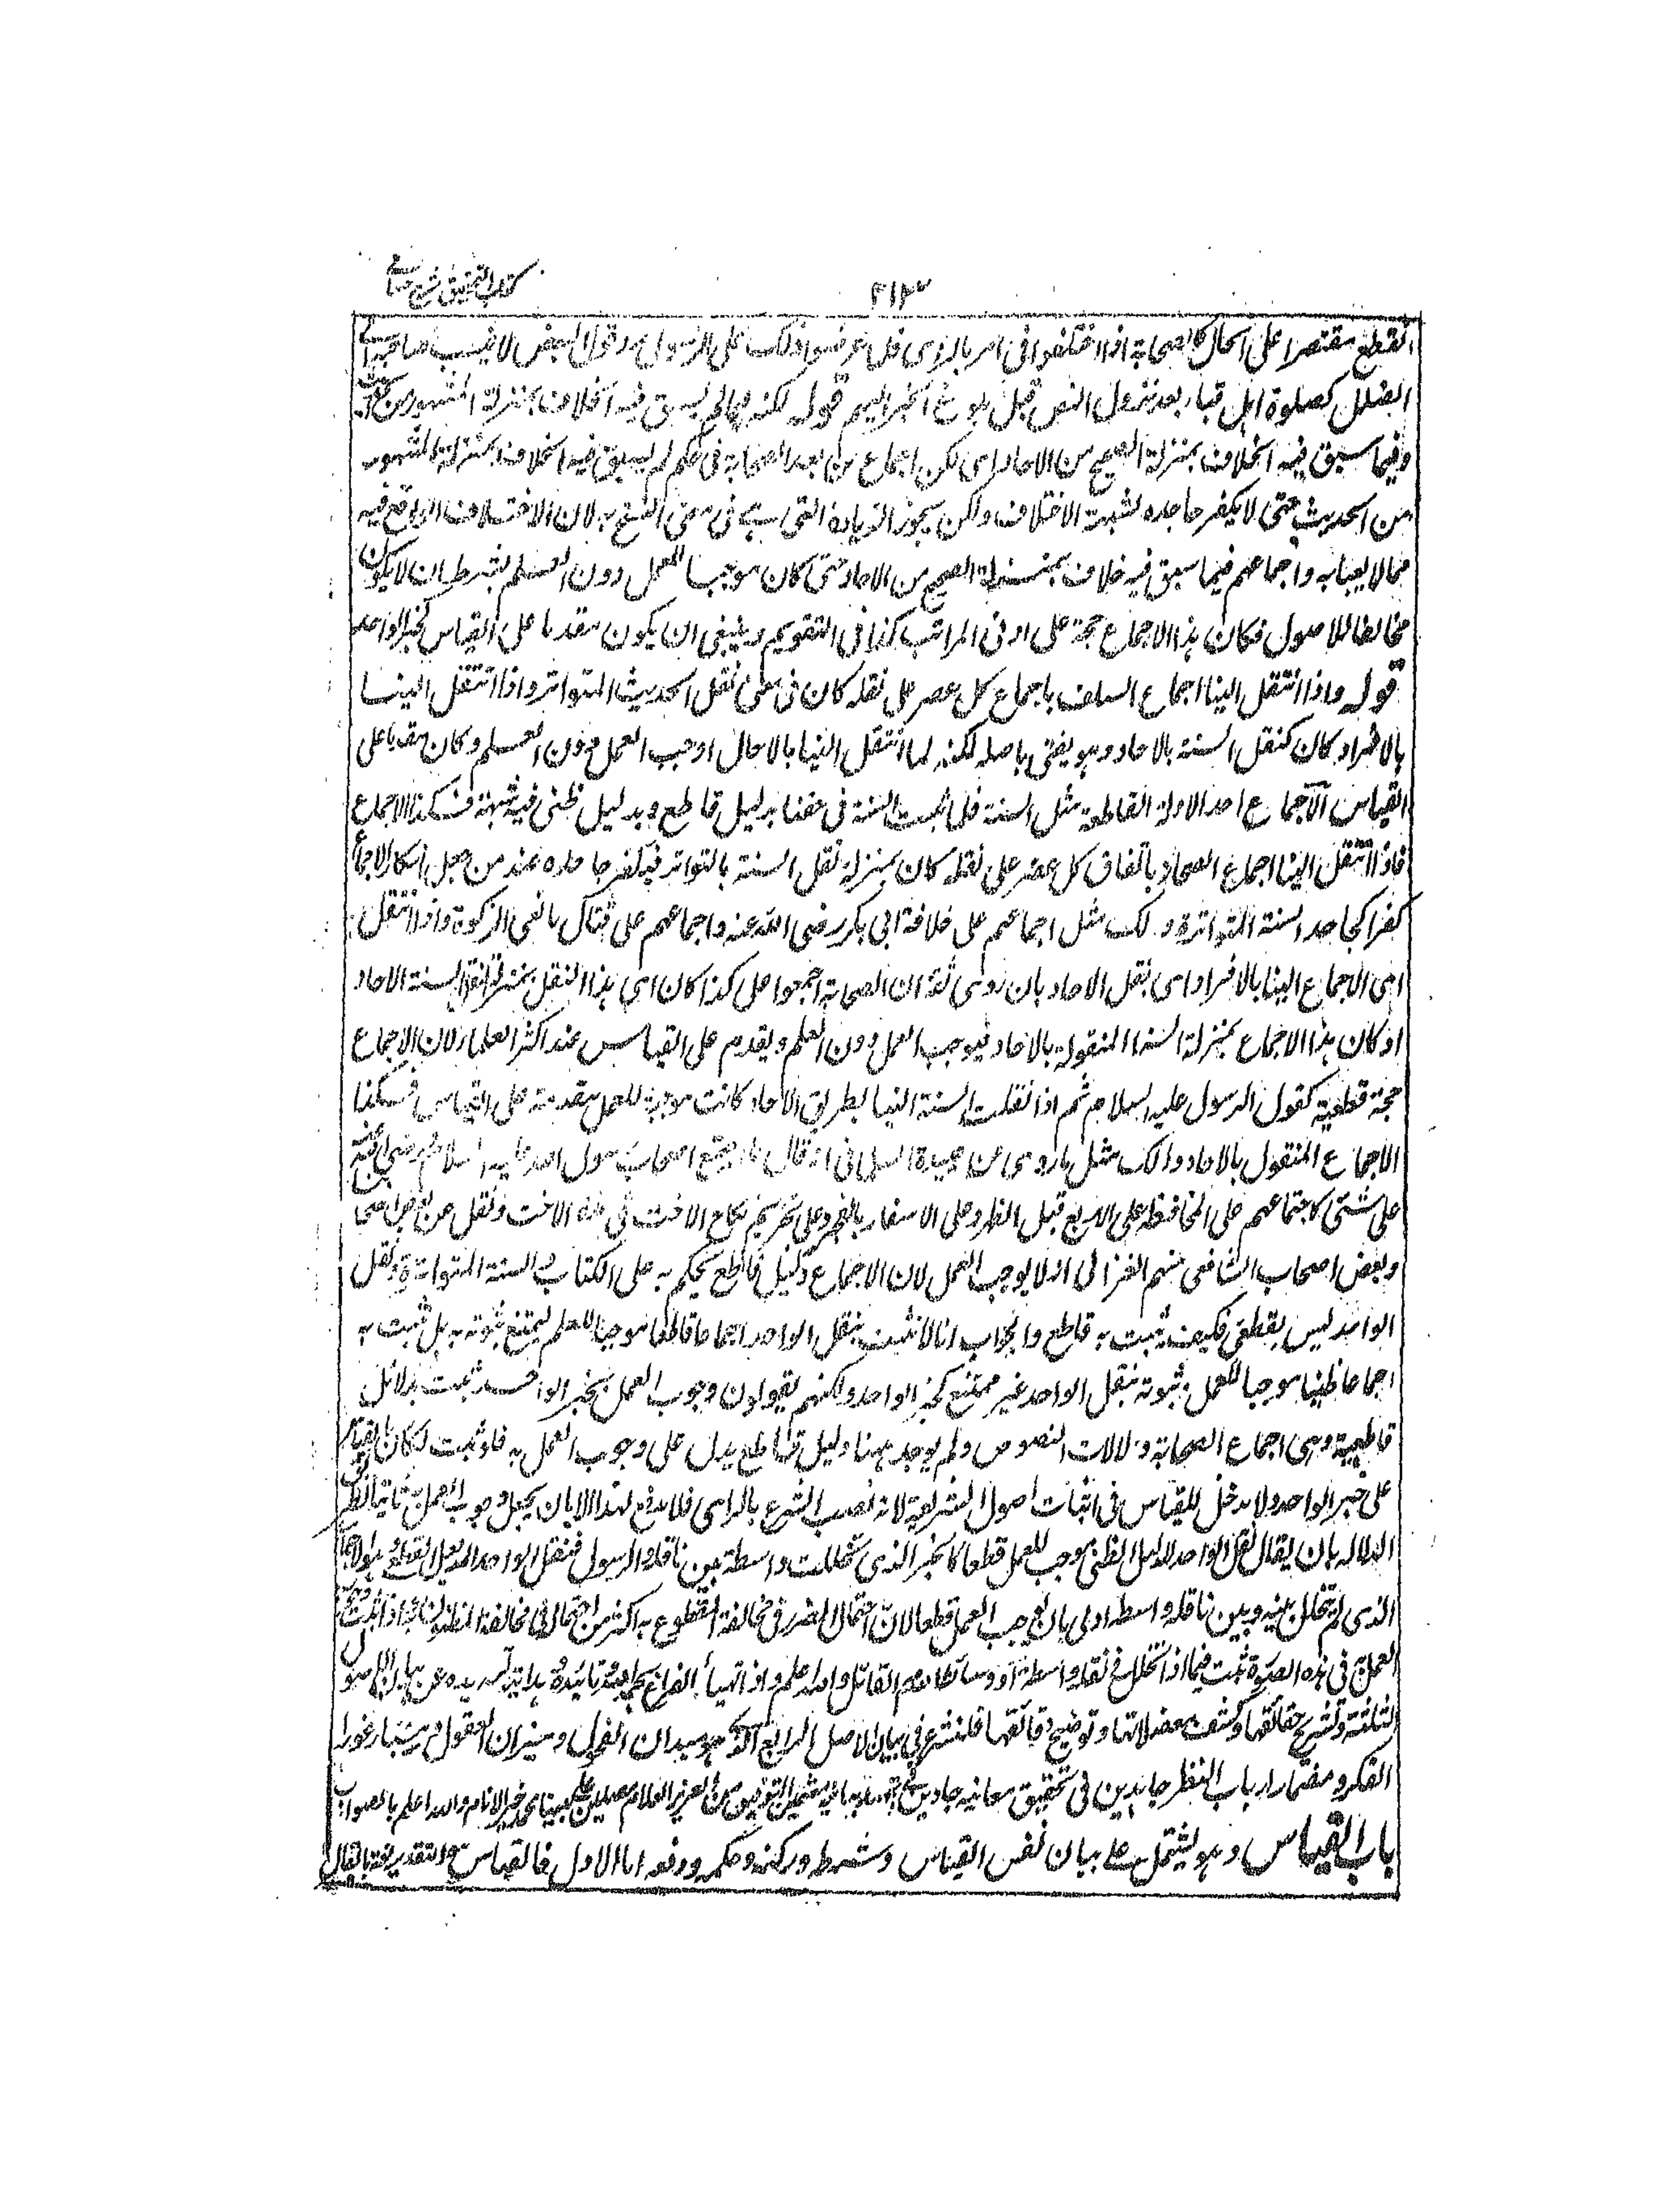 كتاب التحقيق شرح حسامي
٢١٣
انقطع مقتصرا على الحال كالصحابة اذا اختلفوا فى امر بالرأى فلما عرضوا ذلك على الرسول ورد قول البعض لا ينسب صاحبه الى
الضلال كصلوة اهل قباء بعد نزول النص قبل بلوغ الخبر اليهم قوله لكنه فيما لم يسبق فيه الخلاف بمنزلة المشهور من الحديث
وفيما سبق فيه الخلاف بمنزلة الصحيح من الاحاد اى لكن اجماع من بعد الصحابة فى حكم لم يسبق فيه الخلاف بمنزلة المشهور
من الحديث حتى لا يكفر جاحده لشبهة الاختلاف ولكن يجوز الزيادة التى هى فى معنى النسخ به لان الاختلاف الواقع فيه
مما لا يعبا به واجماعهم فيما سبق فيه خلاف بمنزلة الصحيح من الاحاد حتى كان موجبا للعمل دون العلم بشرط ان لا يكون
مخالفا للاصول فكان هذا الاجماع حجة على ادنى المراتب كذا فى التقويم وينبغى ان يكون مقدما على القياس كخبر الواحد
قوله واذا انتقل الينا اجماع السلف باجماع كل عصر على نقله كان فى معنى نقل الحديث المتواتر واذا انتقل الينا
بالافراد كان كنقل السنة بالاحاد وهو يقينى باصله لكنه لما انتقل الينا بالاحاد اوجب العمل دون العلم وكان مقدما على
القياس الاجماع احد الادلة القاطعة مثل السنة فكما ثبت السنة فى حقنا بدليل قاطع وبدليل ظنى فيه شبهة فكذا الاجماع
فاذا انتقل الينا اجماع الصحابة باتفاق كل عصر على نقله كان بمنزلة نقل السنة بالتواتر فيكفر جاحده عند من جعل انكار الاجماع
كفرا كجاحد السنة المتواترة وذلك مثل اجماعهم على خلافة ابى بكر رضى الله عنه واجماعهم على قتال مانعى الزكوة واذا انتقل
اى الاجماع الينا بالافراد اى بنقل الاحاد بان روى ثقة ان الصحابة اجمعوا على كذا كان اى هذا النقل بمنزلة نقل السنة الاحاد
او كان هذا الاجماع بمنزلة السنة المنقولة بالاحاد فيوجب العمل دون العلم ويقدم على القياس عند اكثر العلماء لان الاجماع
حجة قطعية كقول الرسول عليه السلام ثم اذا نقلت السنة الينا بطريق الاحاد كانت موجبة للعمل مقدمة على القياس فكذا
الاجماع المنقول بالاحاد وذلك مثل ما روى عن عبيدة السلمانى انه قال ما اجتمع اصحاب رسول الله عليه السلام ورضى عنهم
على شئ كاجتماعهم على المحافظة على الاربع قبل الظهر وعلى الاسفار بالفجر وعلى تحريم نكاح الاخت فى عدة الاخت ونقل عن بعض اصحابنا
وبعض اصحاب الشافعى منهم الغزالى انه لا يوجب العمل لان الاجماع دليل قاطع يحكم به على الكتاب والسنة المتواترة ونقل
الواحد ليس بقطعى فكيف يثبت به قاطع والجواب انا لا نثبت بنقل الواحد اجماعا قاطعا موجبا للعلم ليمتنع ثبوته به بل نثبت به
اجماعا ظنيا موجبا للعمل وثبوته بنقل الواحد غير ممتنع كخبر الواحد ولكنهم يقولون وجوب العمل بخبر الواحد ثبت بدلائل
قاطعية وهى اجماع الصحابة ودلالات النصوص ولم يوجد ههنا دليل قاطع يدل على وجوب العمل به فلو ثبت لكان بالقياس
على خبر الواحد ولا مدخل للقياس فى اثبات اصول الشريعة لانه نصب الشرع بالراى فلا مدفع لهذا الا بان يجعل وجوب العمل به ثابتا بطريق
الدلالة بان يقال نقل الواحد للدليل الظنى موجب للعمل قطعا كالخبر الذى تخللت واسطة بين ناقله والرسول فنقل الواحد الدليل القطعى وهو الاجماع
الذى لم يتخلل بينه وبين ناقله واسطة اولى بان يوجب العمل قطعا لان احتمال الضرر فى مخالفة المقطوع به اكثر من احتماله فى مخالفة المظنون
العمل به فى هذه الصورة ثبت فيما اذا تخلل فى نقله واسطة او وسائط لعدم القائل والله اعلم واذ تهيأ الفراغ بحمد الله وتائيده عن بيان الاصول
الثلثة وتشريح حقائقها وكشف معضلاتها وتوضيح دقائقها فلنشرع فى بيان الاصل الرابع الذى هو ميدان الفحول وميزان العقول
الفكر ومضمار ارباب النظر جاهدين فى تحقيق معانيه جادين فى تشييد مبانيه التوفيق من العزيز العلام مصلين على نبينا محمد خير الانام والله اعلم بالصواب
باب القياس وهو يشتمل على بيان نفس القياس وشرطه وركنه وحكمه ودفعه اما الاول فالقياس هو التقدير لغة يقال